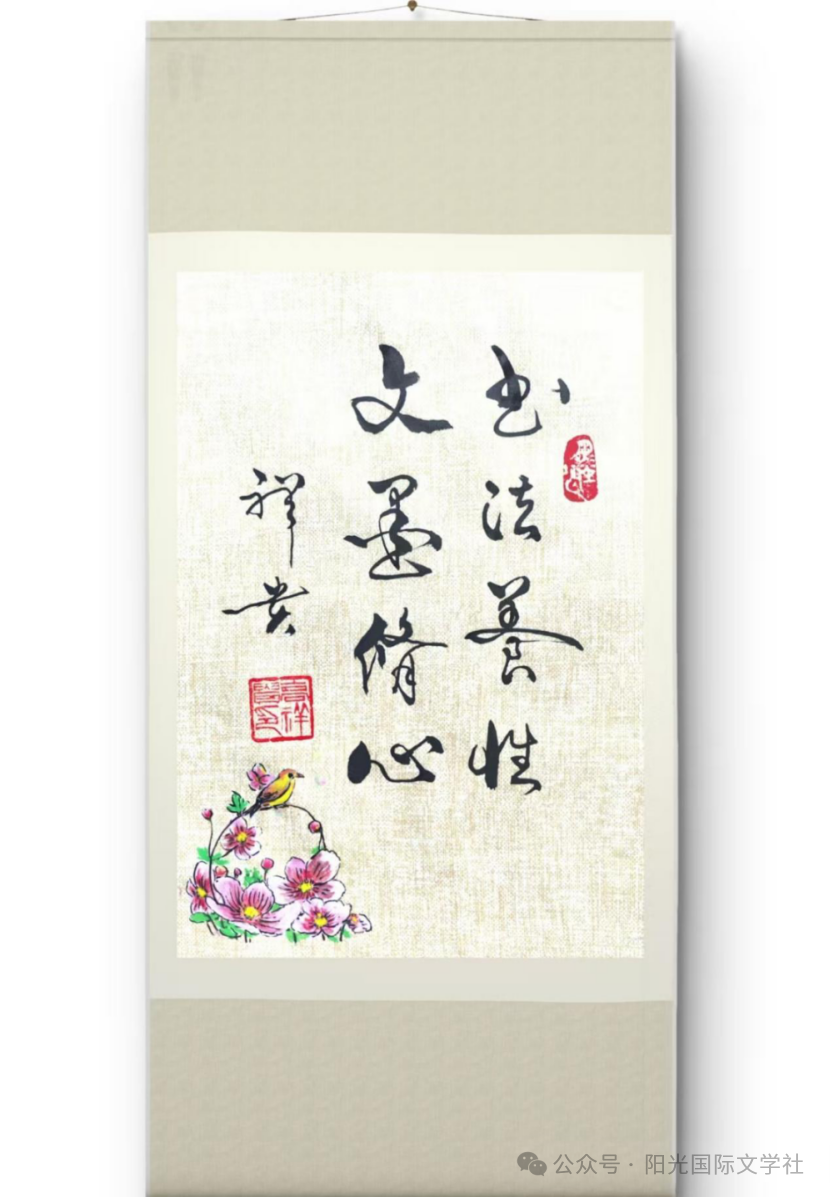 书法养性
文墨修心
祥贵
公众号 · 阳光国际文学社